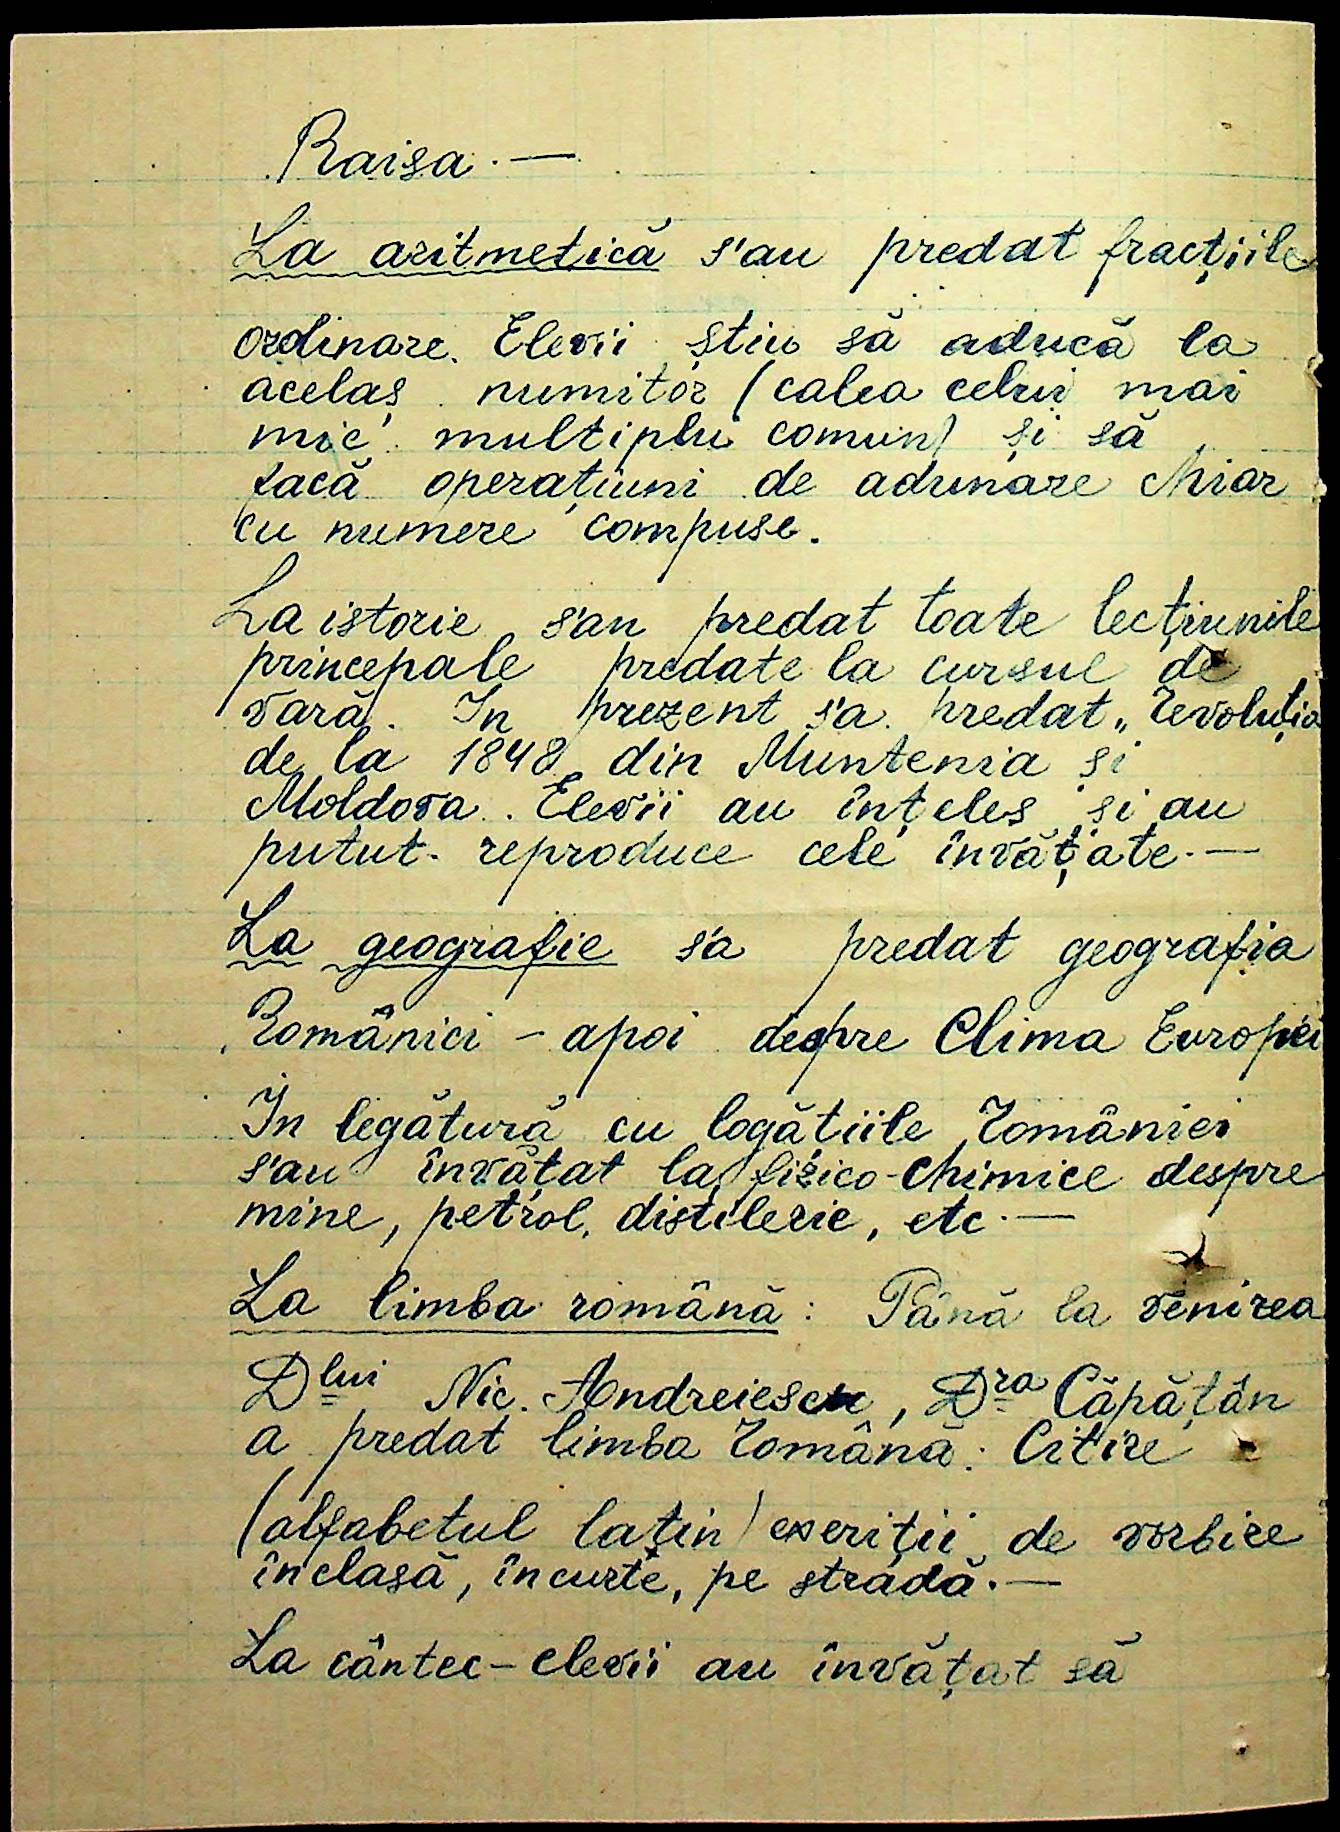 Raisa. —
La aritmetică s'au predat fracțiile
ordinare. Elevii știu să aducă la
acelaș numitor (calea celui mai
mic multiplu comun) și să
facă operațiuni de adunare chiar
cu numere compuse.
La istorie s'au predat toate lecțiunile
principale predate la cursul de
vară. In prezent s'a predat „Revoluția
de la 1848 din Muntenia și
Moldova. Elevii au înțeles și au
putut reproduce cele învățate. —
La geografie s'a predat geografia
României – apoi despre Clima Europei
In legătură cu bogățiile României
s'au învățat la fizico-chimice despre
mine, petrol, distilerie, etc. —
La limba română: Până la venirea
Dlui Nic. Andreiescu, Dra Căpățân
a predat limba Română: Citire
(alfabetul latin) exeriții de vorbire
în clasă, în curte, pe stradă. —
La cântec – elevii au învățat să